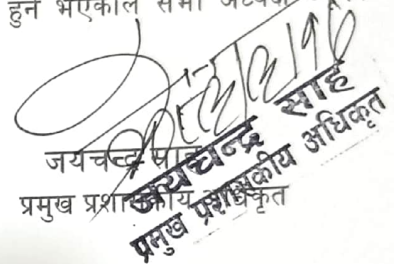 हुन भएकोले सभा अध्यक्ष
जयचन्द्र साह
प्रमुख प्रशासकीय अधिकृत
जयचन्द्र साह
प्रमुख प्रशासकीय अधिकृत